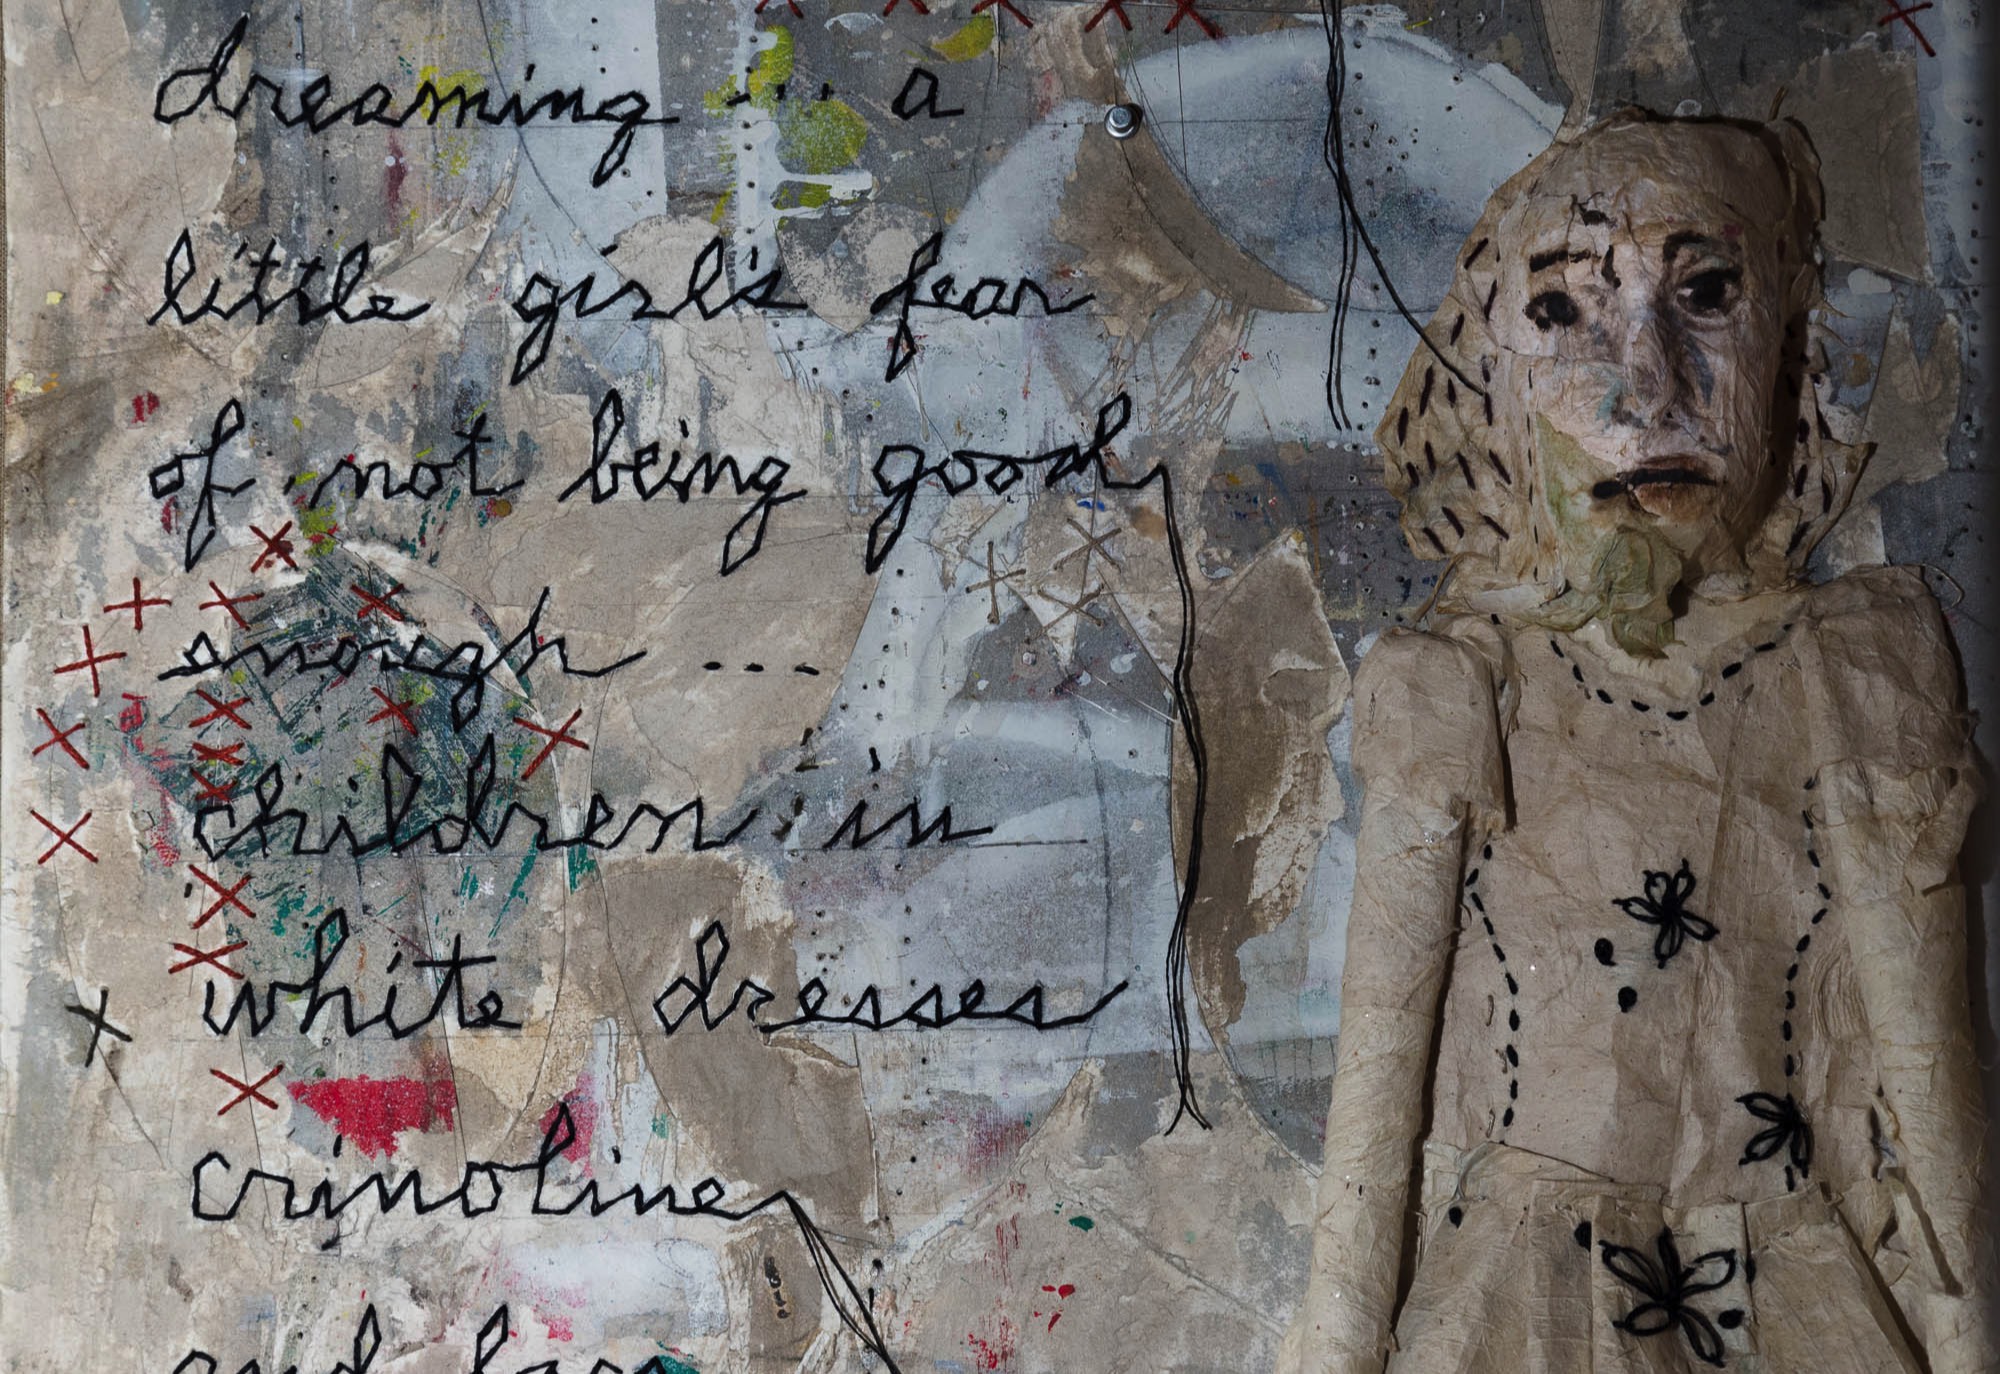 dreaming ... a
little girl's fear
of not being good
enough ...
children in
white dresses
crinoline
and